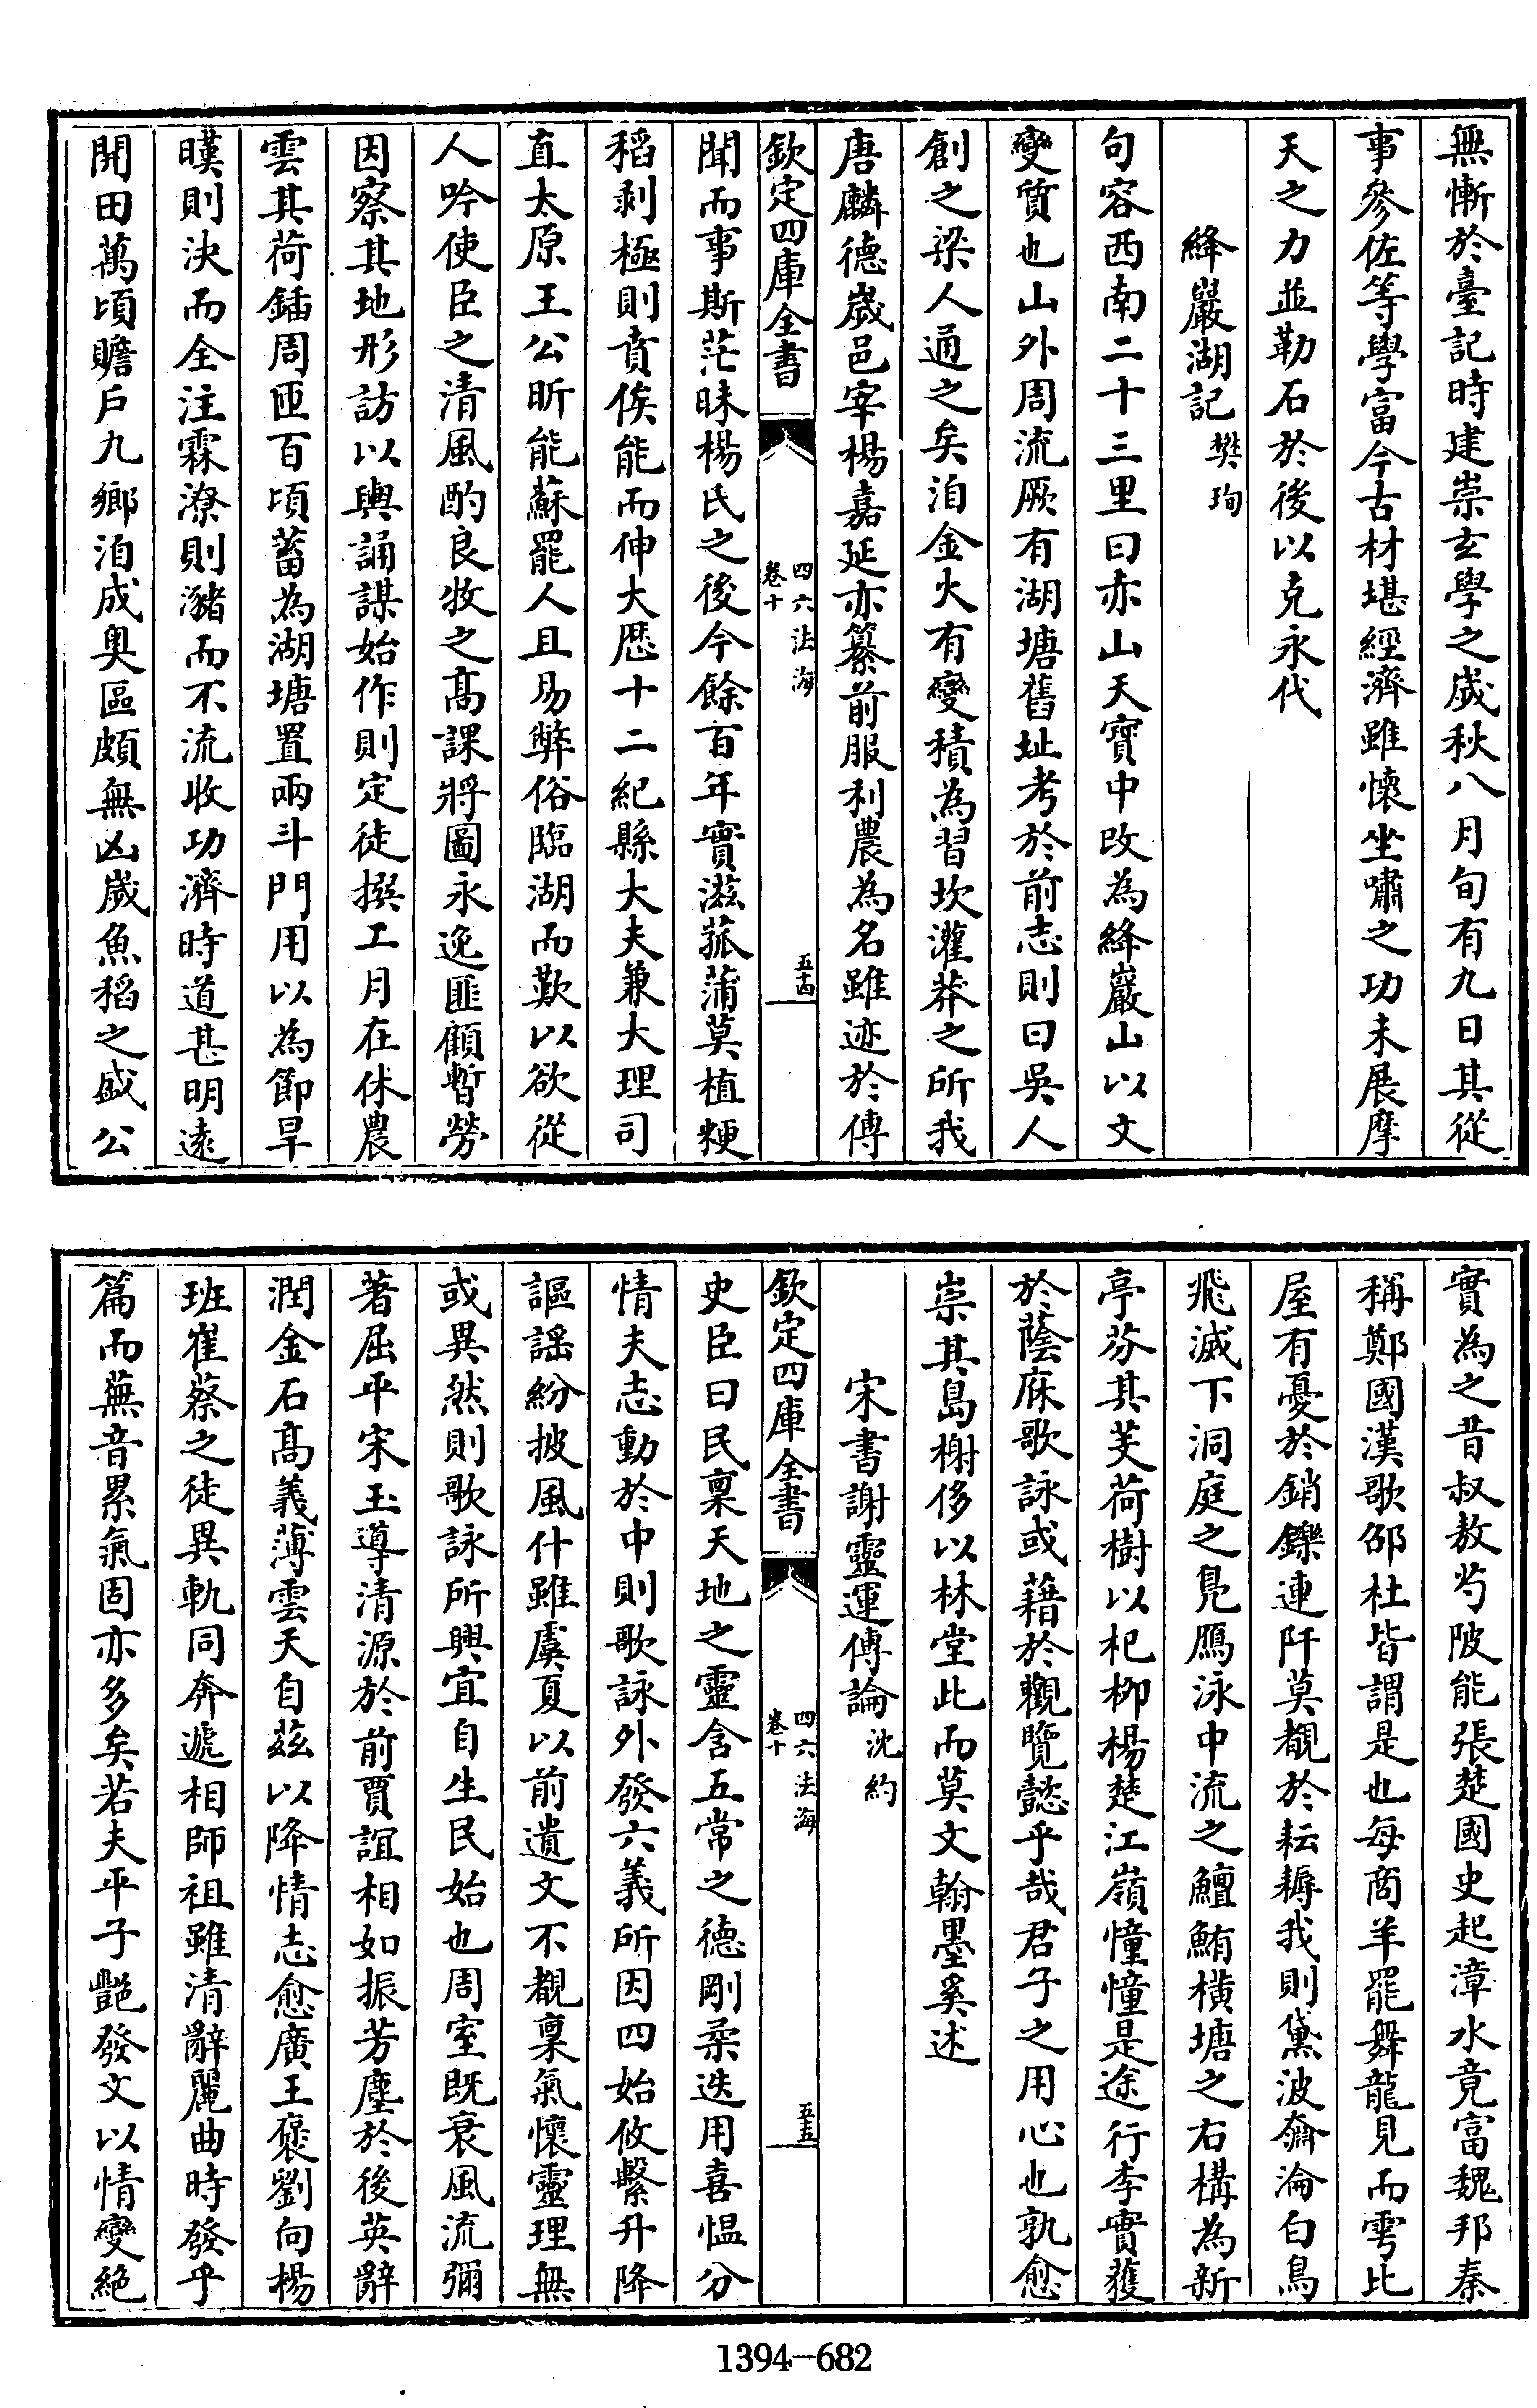 無慚於臺記時建崇玄學之歲秋八月旬有九日其從
事參佐等學富今古材堪經濟雖懷坐嘯之功未展摩
天之力並勒石於後以克永代
絳巖湖記 樊珣
句容西南二十三里曰赤山天寶中改為絳巖山以文
變質也山外周流厥有湖塘舊址考於前志則曰吳人
創之梁人通之矣洎金火有變積為習坎灌莽之所我
唐麟德歲邑宰楊嘉延亦纂前服利農為名雖迹於傳
欽定四庫全書
四六法海
卷十
五十四
聞而事斯茫昧楊氏之後今餘百年實滋菰蒲莫植粳
稻剥極則賁俟能而伸大厯十二紀縣大夫兼大理司
直太原王公昕能蘇罷人且易弊俗臨湖而歎以欲從
人吟使臣之清風酌良牧之髙課將圖永逸匪顧暫勞
因察其地形訪以輿誦謀始作則定徒撰工月在休農
雲其荷鍤周匝百頃蓄為湖塘置兩斗門用以為節旱
暵則決而全注霖潦則瀦而不流收功濟時道甚明遠
開田萬頃贍戶九鄉洎成奥區頗無凶歲魚稻之盛公
實為之昔叔敖芍陂能張楚國史起漳水竟富魏邦秦
稱鄭國漢歌邵杜皆謂是也每商羊罷舞龍見而雩比
屋有憂於銷鑠連阡莫覩於耘耨我則黛波奫淪白鳥
飛滅下洞庭之鳬鴈泳中流之鱣鮪橫塘之右構為新
亭芬其芰荷樹以杞柳楊楚江嶺憧憧是途行李實獲
於蔭庥歌詠或藉於觀覽懿乎哉君子之用心也孰愈
崇其島榭侈以林堂此而莫文翰墨奚述
宋書謝靈運傳論 沈約
欽定四庫全書
四六法海
卷十
五十五
史臣曰民稟天地之靈含五常之德剛柔迭用喜愠分
情夫志動於中則歌詠外發六義所因四始攸繫升降
謳謡紛披風什雖虞夏以前遺文不覩稟氣懷靈理無
或異然則歌詠所興宜自生民始也周室既衰風流彌
著屈平宋玉導清源於前賈誼相如振芳塵於後英辭
潤金石髙義薄雲天自茲以降情志愈廣王褒劉向楊
班崔蔡之徒異軌同奔遞相師祖雖清辭麗曲時發乎
篇而蕪音累氣固亦多矣若夫平子艷發文以情變絶
1394-682